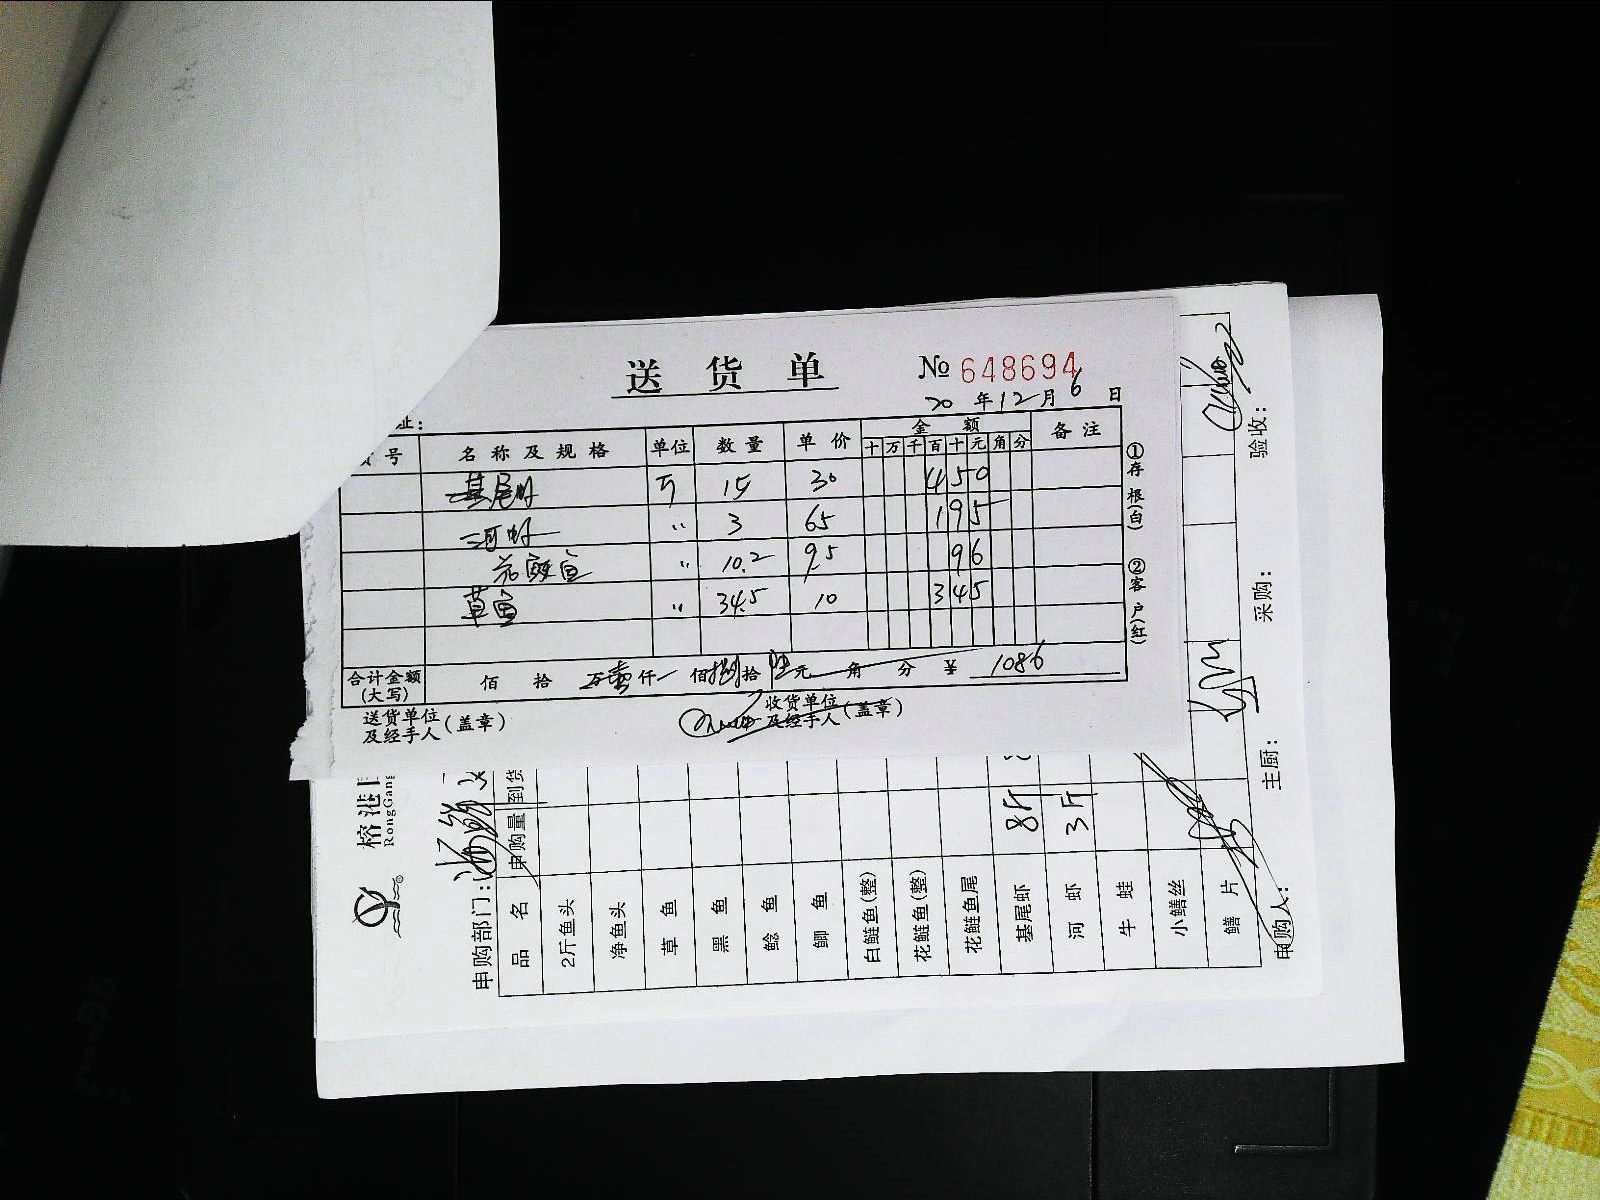 送货单 № 648694
20 年 12 月 6 日
址：
号 名称及规格 单位 数量 单价 金额 备注
十 万 千 百 十 元 角 分
基尾虾 斤 15 30 450
河虾 〃 3 65 195
花鲢鱼 〃 10.2 9.5 96
草鱼 〃 34.5 10 345
合计金额(大写) 佰 拾 万壹仟 佰捌拾陆元 角 分 ¥ 1086
送货单位及经手人(盖章) 收货单位及经手人(盖章)
①存根(白) ②客户(红)
榕港
RongGang
申购部门：
品名 申购量 到货
2斤鱼头
净鱼头
草鱼
黑鱼
鲶鱼
鲫鱼
白鲢鱼(整)
花鲢鱼(整)
花鲢鱼尾
基尾虾 8斤
河虾 3斤
牛蛙
小鳝丝
鳝片
申购人： 主厨： 采购： 验收：